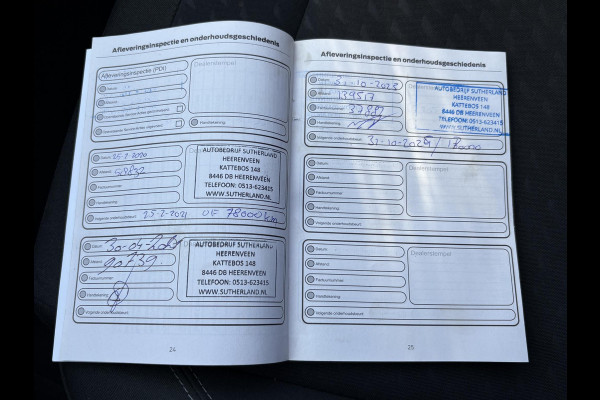 Afleveringsinspectie en onderhoudsgeschiedenis
Afleveringsinspectie (PDI)
Dealerstempel
Datum
Afstand
Handtekening
Datum 25-2-2020
Afstand
Factuurnummer
Handtekening
Volgende onderhoudsbeurt 25-2-2021 OF 78000 km
AUTOBEDRIJF SUTHERLAND
HEERENVEEN
KATTEBOS 148
8446 DB HEERENVEEN
TELEFOON: 0513-623415
WWW.SUTHERLAND.NL
Datum
Afstand 90239
Factuurnummer
Handtekening
Volgende onderhoudsbeurt
AUTOBEDRIJF SUTHERLAND
HEERENVEEN
KATTEBOS 148
8446 DB HEERENVEEN
TELEFOON: 0513-623415
WWW.SUTHERLAND.NL
24
Afleveringsinspectie en onderhoudsgeschiedenis
Datum 31-10-2023
Afstand 139517
Factuurnummer
Handtekening
Volgende onderhoudsbeurt
AUTOBEDRIJF SUTHERLAND
HEERENVEEN
KATTEBOS 148
8446 DB HEERENVEEN
TELEFOON: 0513-623415
WWW.SUTHERLAND.NL
Datum
Afstand
Factuurnummer
Handtekening
Volgende onderhoudsbeurt
Dealerstempel
Datum
Afstand
Factuurnummer
Handtekening
Volgende onderhoudsbeurt
Dealerstempel
25